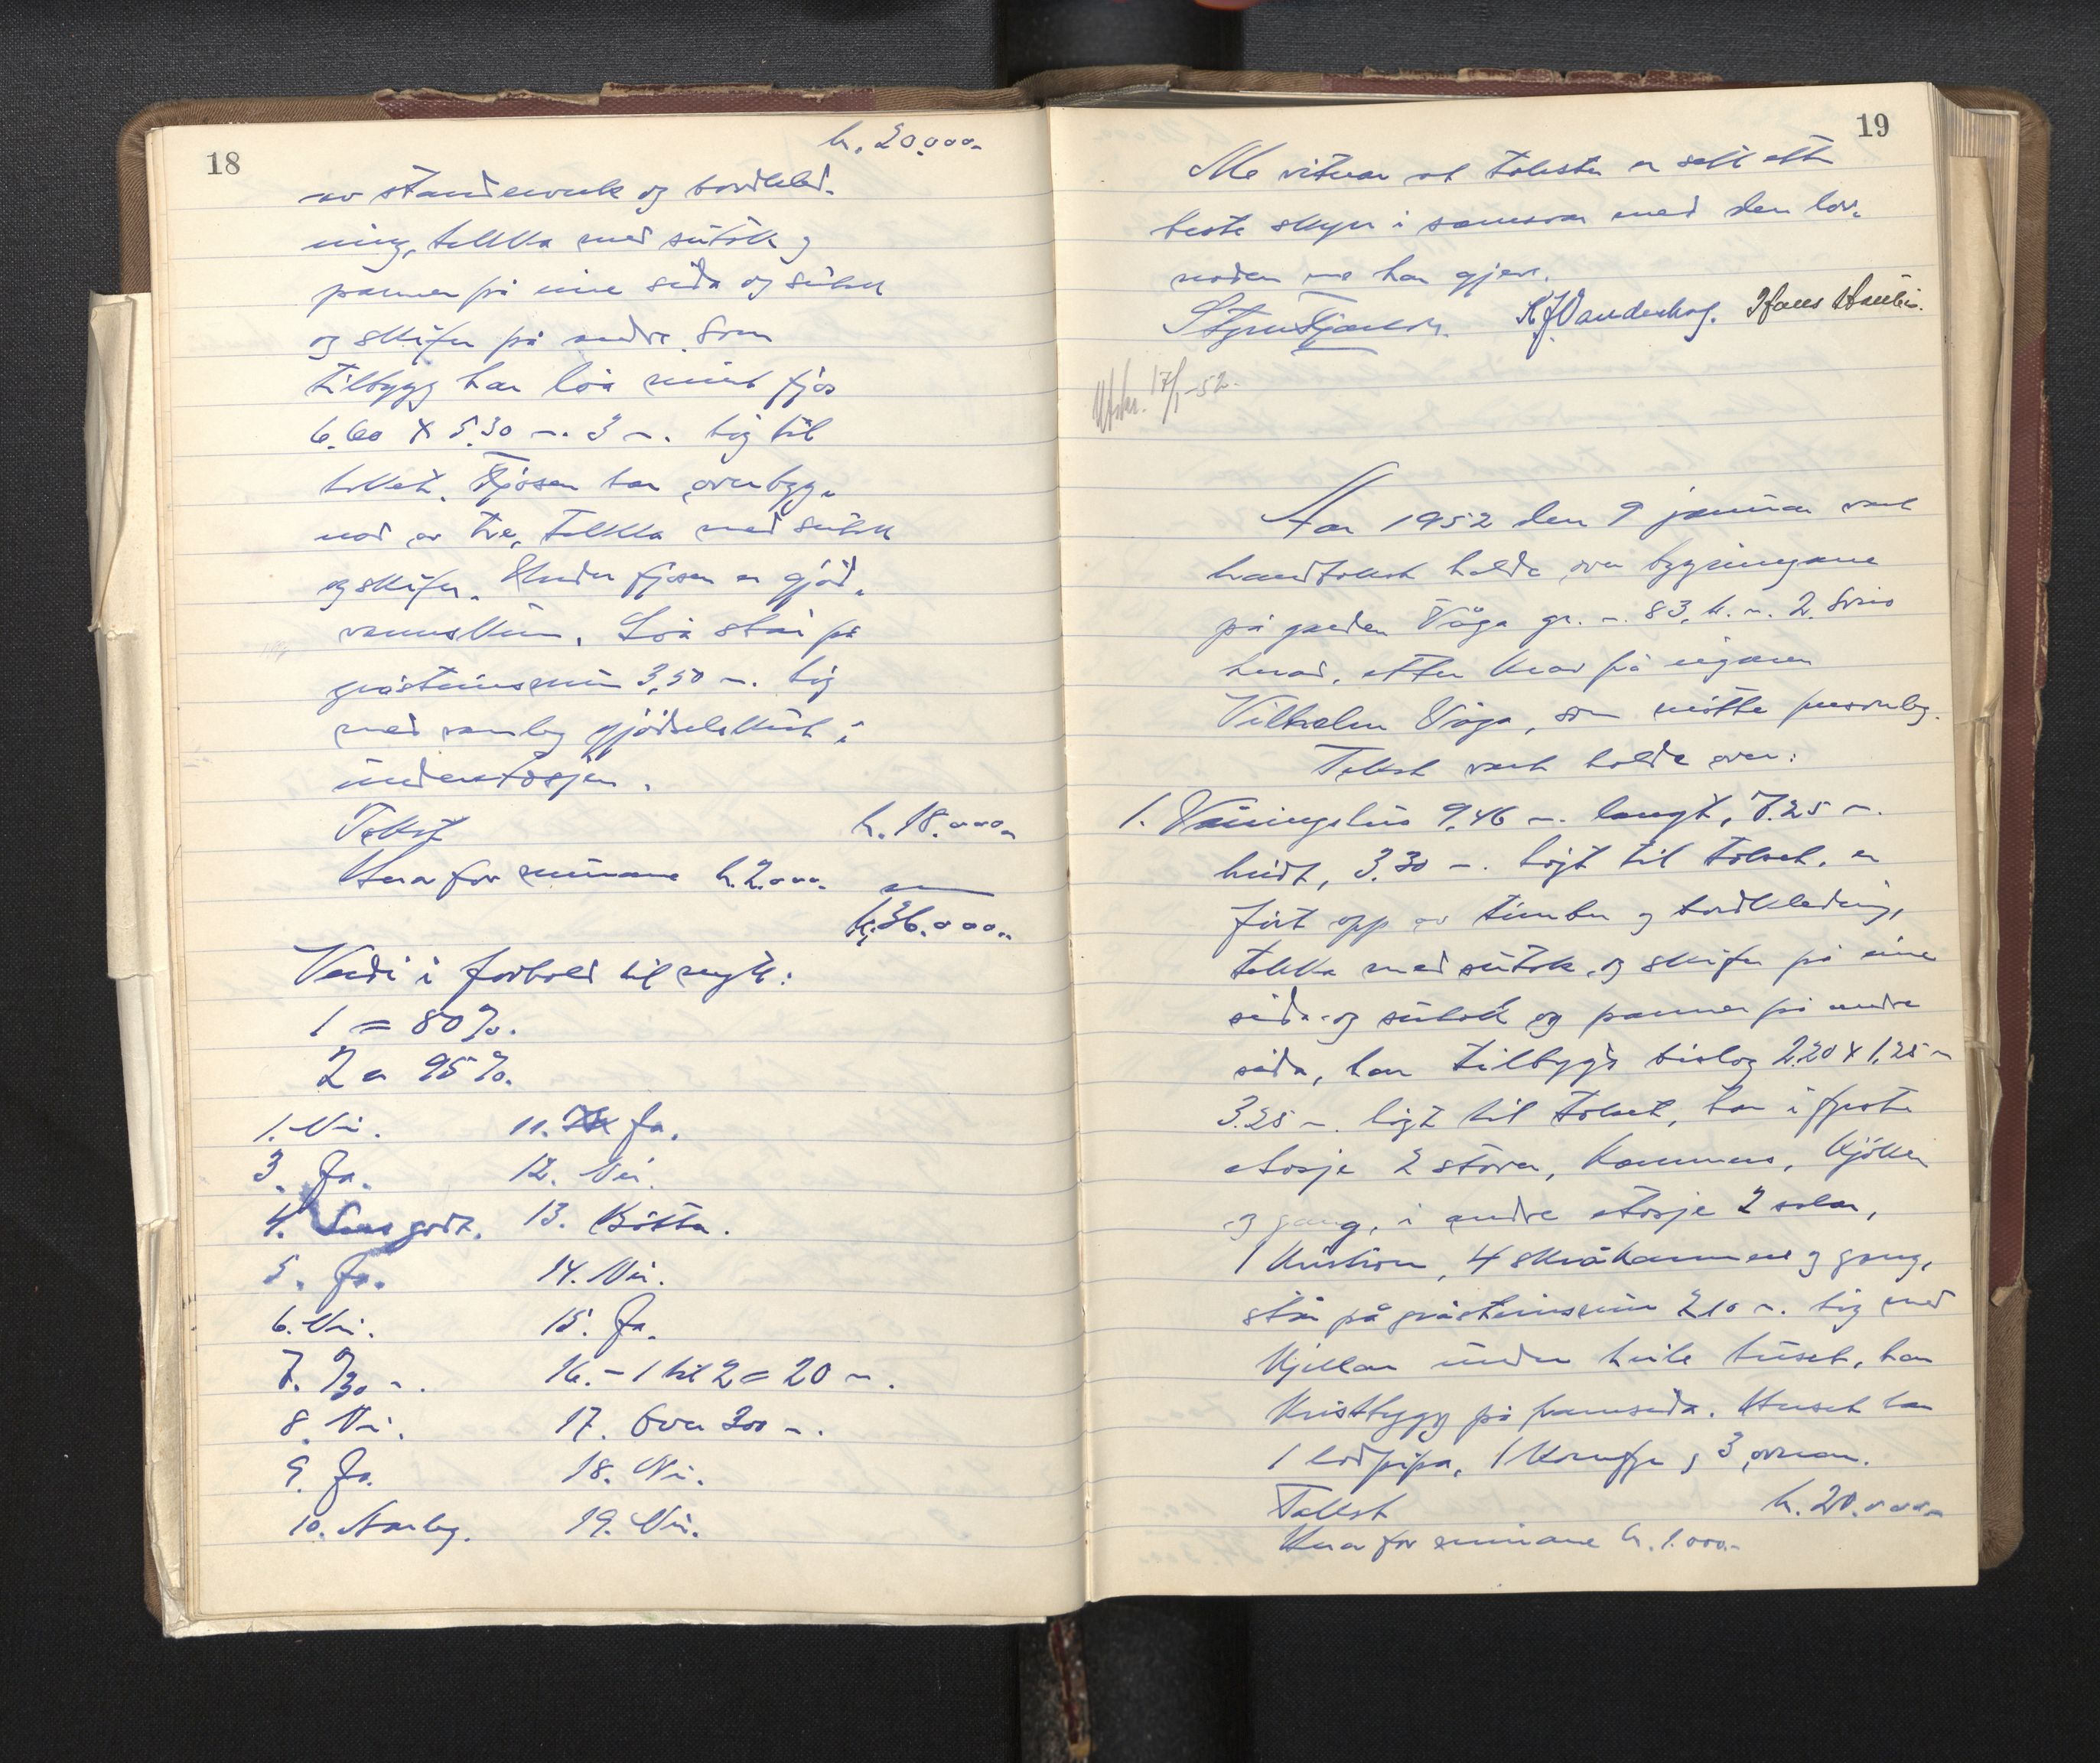 18
kr. 20.000.-
av standerverk og bordkled-
ning, tekka med sutak og
panner på eine sida og sutak
og skifer på andre. Som
tilbygg har løa murt fjøs
6.60 x 5.30 m. 3 m. høg til
taket. Fjøsen har overbygg-
nad av tre, tekka med sutak
og skifer. Under fjøsen er gjød-
La står på
gråsteinsmur 3,50 m. høg
med vanleg gjødselskut i
underetasjen.
Takst kr. 18.000.-
Herav for murane kr. 2.000.-
kr. 36.000.-
Verdi i forhold til nytt:
1 = 80%.
2 = 95%.
1. Nei. 11. Ja.
3. Ja. 12. Nei.
4. godt. 13. Bøtta.
5. Ja. 14. Nei.
6. Nei. 15. Ja.
7. 9/30 m. 16. - 1 til 2 = 20 m.
8. Nei. 17. Over 300 m.
9. Ja. 18. Nei.
10. Vanleg. 19. Nei.
19
Me vitnar at taksten er sett etter
beste skjyn i samsvar med den lov-
naden me har gjeve.
K J Vanderhag. Hans
Utskr. 17/1-52.
Aar 1952 den 9 januar vart
branntakst halde over bygningane
på garden Våga gr. n. 83, br. n. 2. Svio
herad, etter krav frå eigaren
Vilhelm Våga, som møtte personleg.
Takst vart halde over:
1. Våningshus 9,46 m. langt, 7.25 m.
breidt, 3.30 m. høgt til taket, er
ført opp av timber og bordkledning,
tekka med sutak og skifer på eine
sida og sutak og panner på andre
sida, har tilbygt bislag 2.20 x 1,25 m
3.25 m. høgt til taket, har i fyrste
etasje 2 stover, kammers, kjøken
og gang, i andre etasje 2 salar,
1 kvistrom, 4 skråkammers og gang,
står på gråsteinsmur 2.10 m. høg med
kjellar under heile huset, har
kvistbygg på framsida. Huset har
1 lodpipa, 1 komfyr og 3 omnar.
Takst kr. 20.000.-
Herav for murane kr. 1.000.-